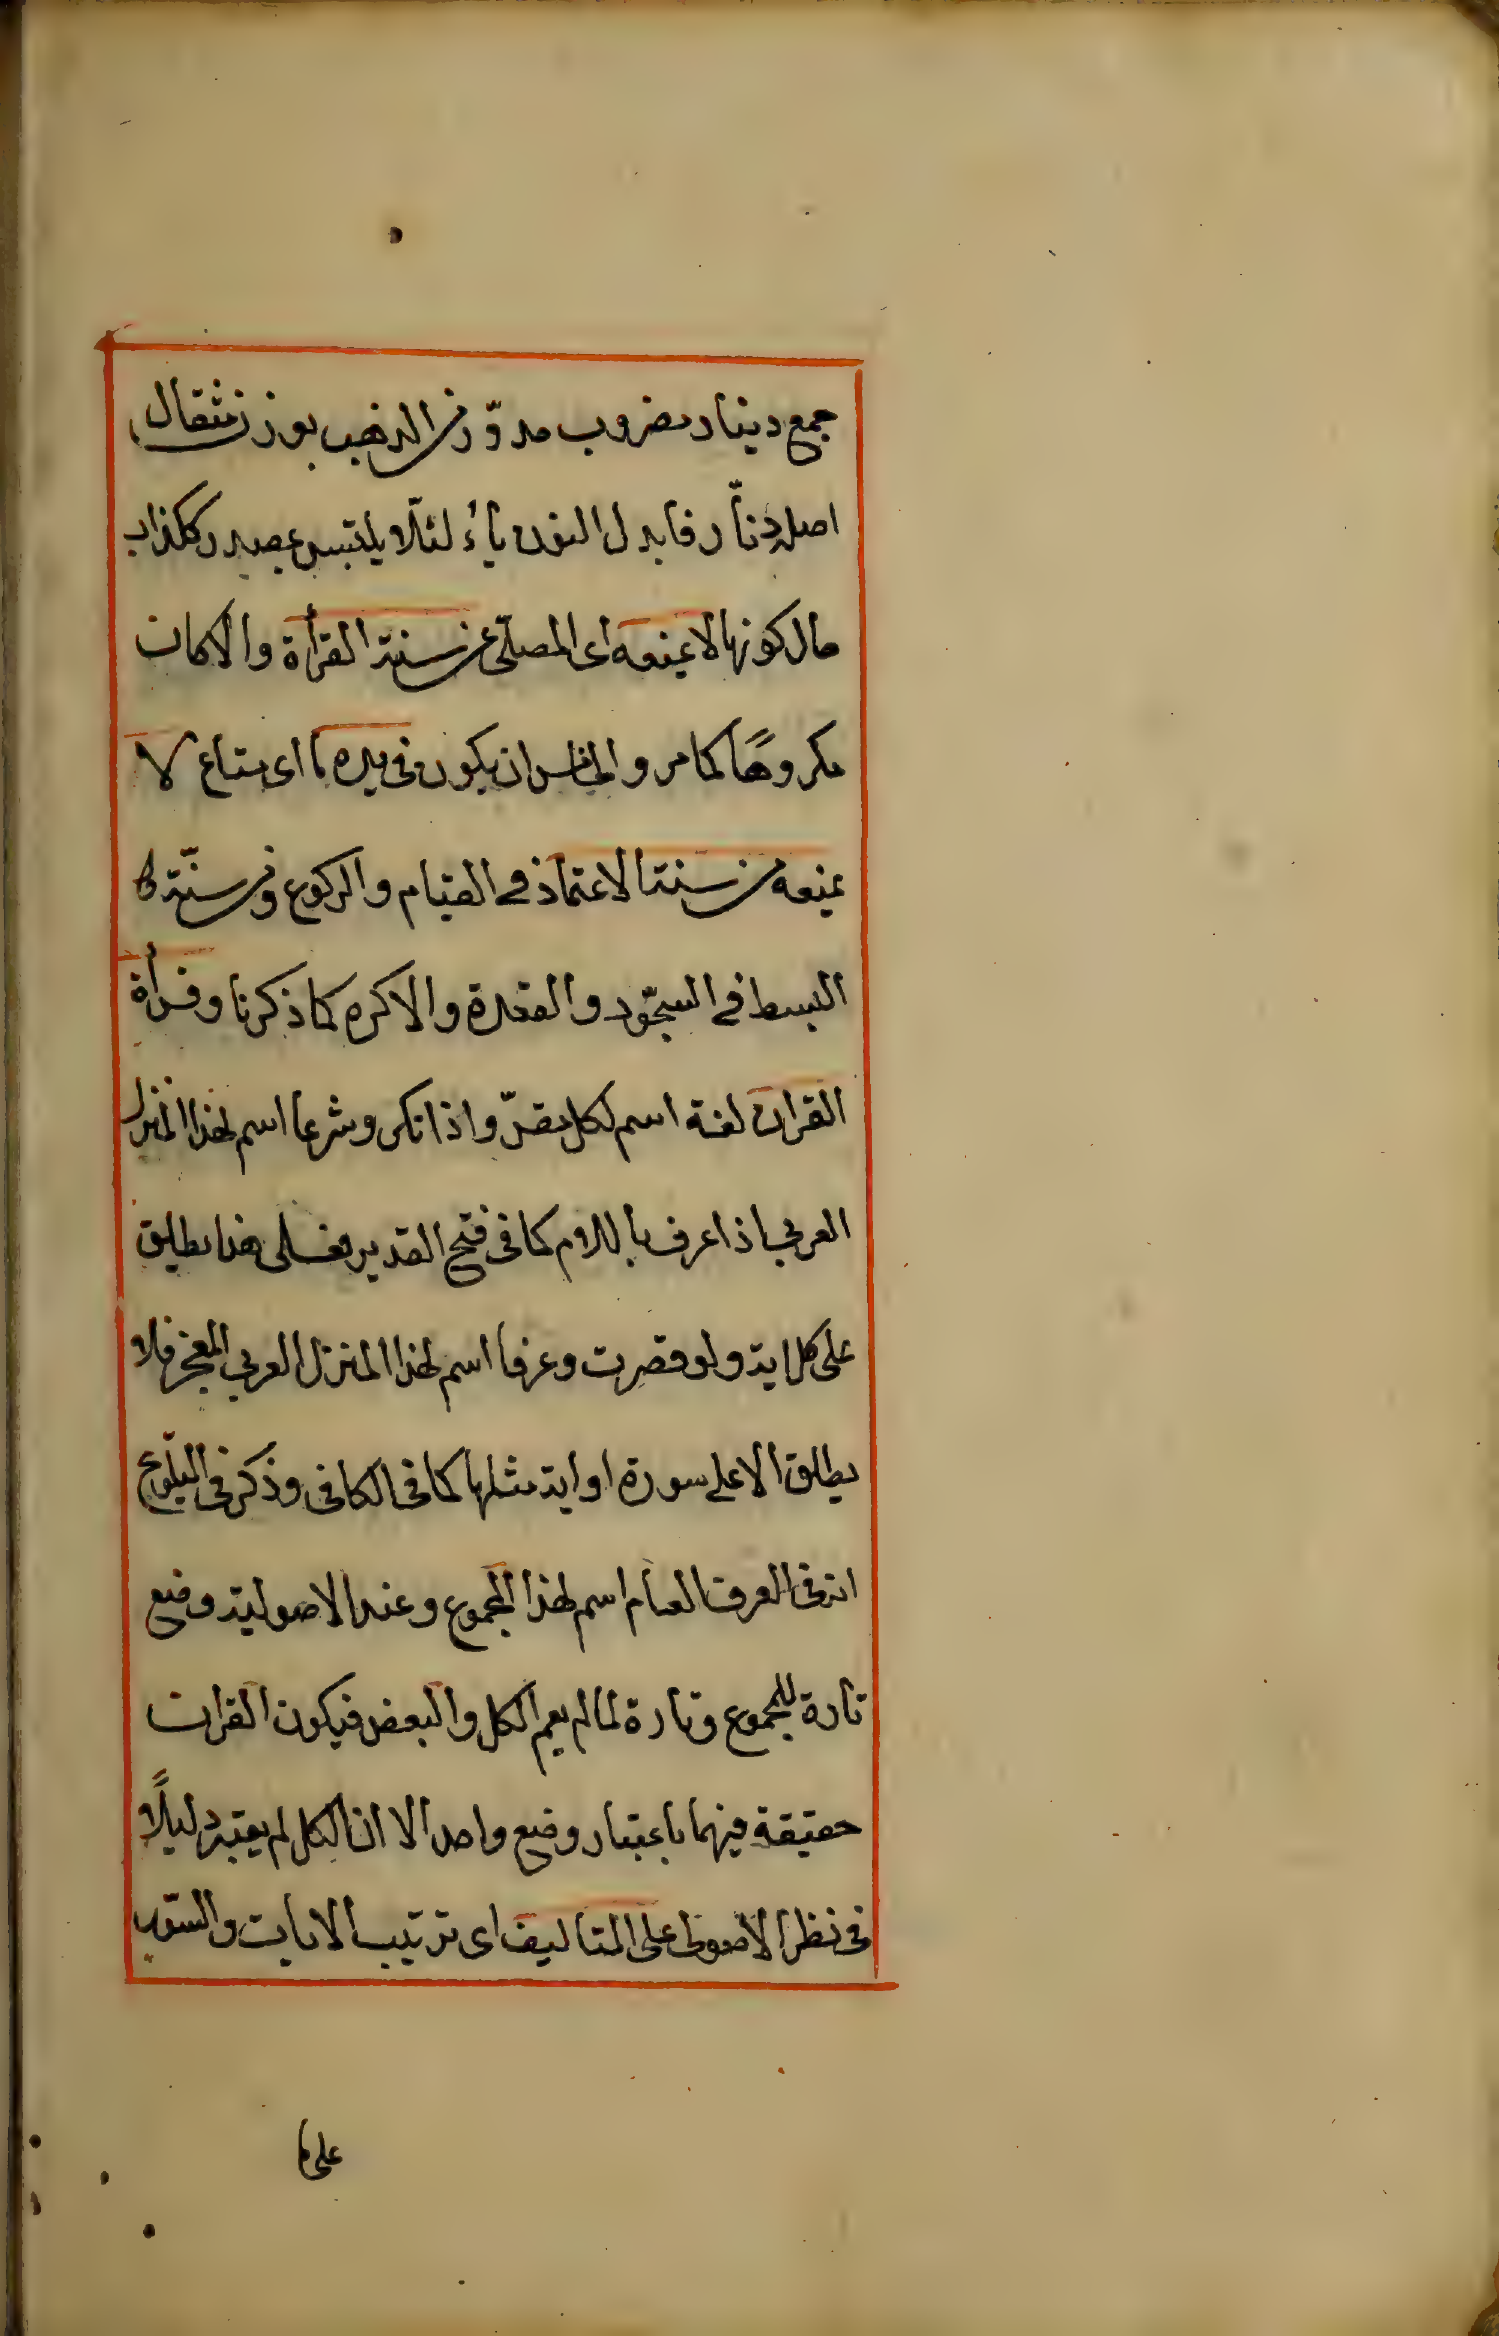 جمع دينار مضروب مدوّر من الذهب بوزن مثقال
اصله دنّار فابدل النون ياءً لئلّا يلتبس بمصدر ككذاب
حال كونها لا يمنعه اى المصلّى عن سنة القرأة والا كان
مكروهًا كما مر والخامس ان يكون فى يده ما اى متاع لا
يمنعه من سنة الاعتماد فى القيام والركوع ومن سنّته
البسط فى السجّود والقعدة والا كره كما ذكرنا وقرأة
القران لغة اسم لكل مقرّو اذا نكر وشرعا اسم لهذا المنزل
العربى اذا عرف باللام كما فى فتح القدير فعلى هذا يطلق
على كل اية ولو قصرت وعرفا اسم لهذا المنزل العربى المعجز فلا
يطلق الا على سورة او اية مثلها كما فى الكافى وذكر فى التلّوع
انه فى العرف العام اسم لهذا المجموع وعند الاصولية وضع
تارة للمجموع وتارة لما لم يعم الكل والبعض فيكون القران
حقيقة فيهما باعتبار وضع واحد الا ان الكل لم يعتبر دليلًا
فى نظر الاصولى على التأليف اى ترتيب الايات والسّور
على ما